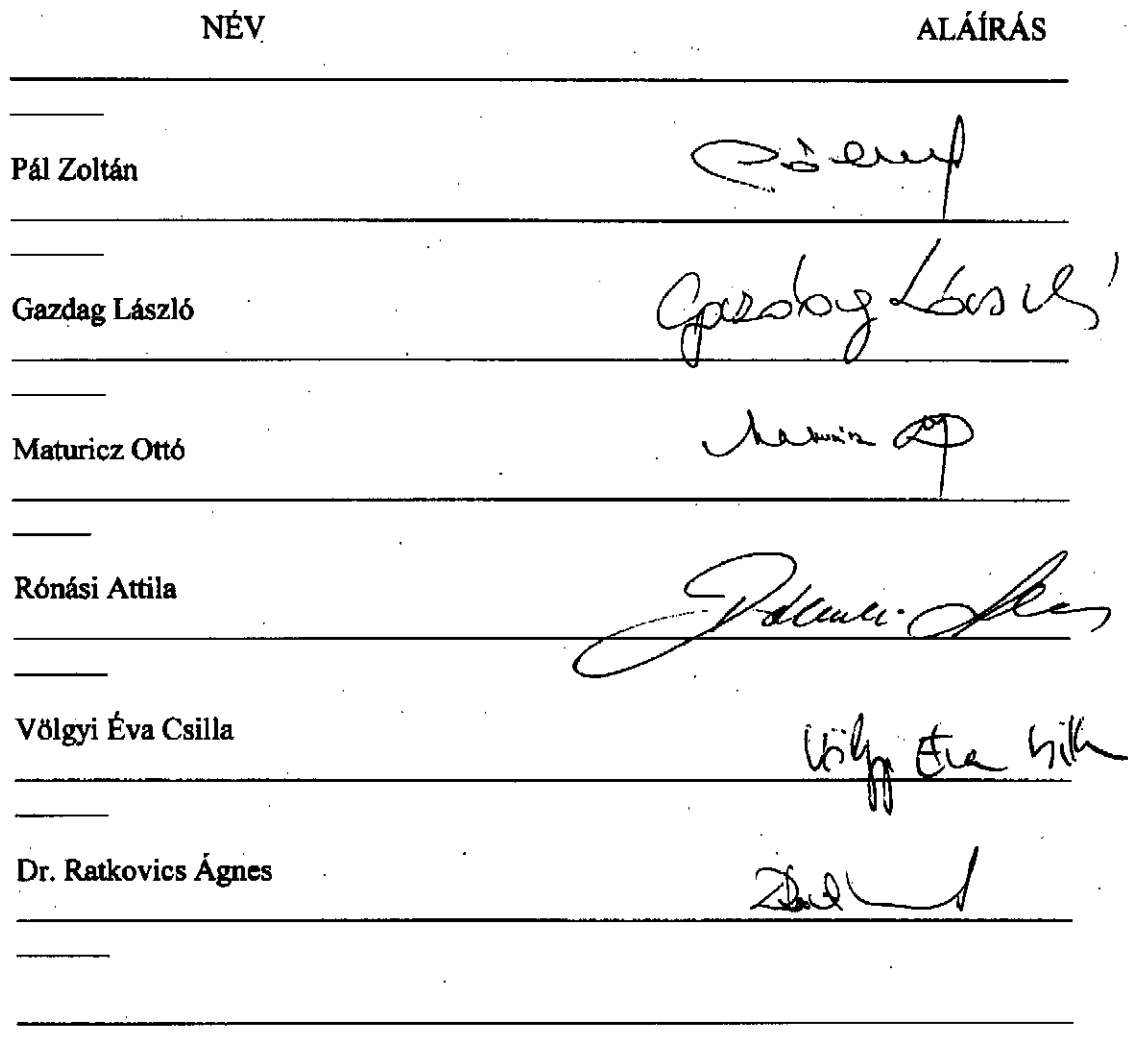 NÉV ALÁÍRÁS
Pál Zoltán
Gazdag László Gazdag László
Maturicz Ottó
Rónási Attila
Völgyi Éva Csilla Völgyi Éva Csilla
Dr. Ratkovics Ágnes